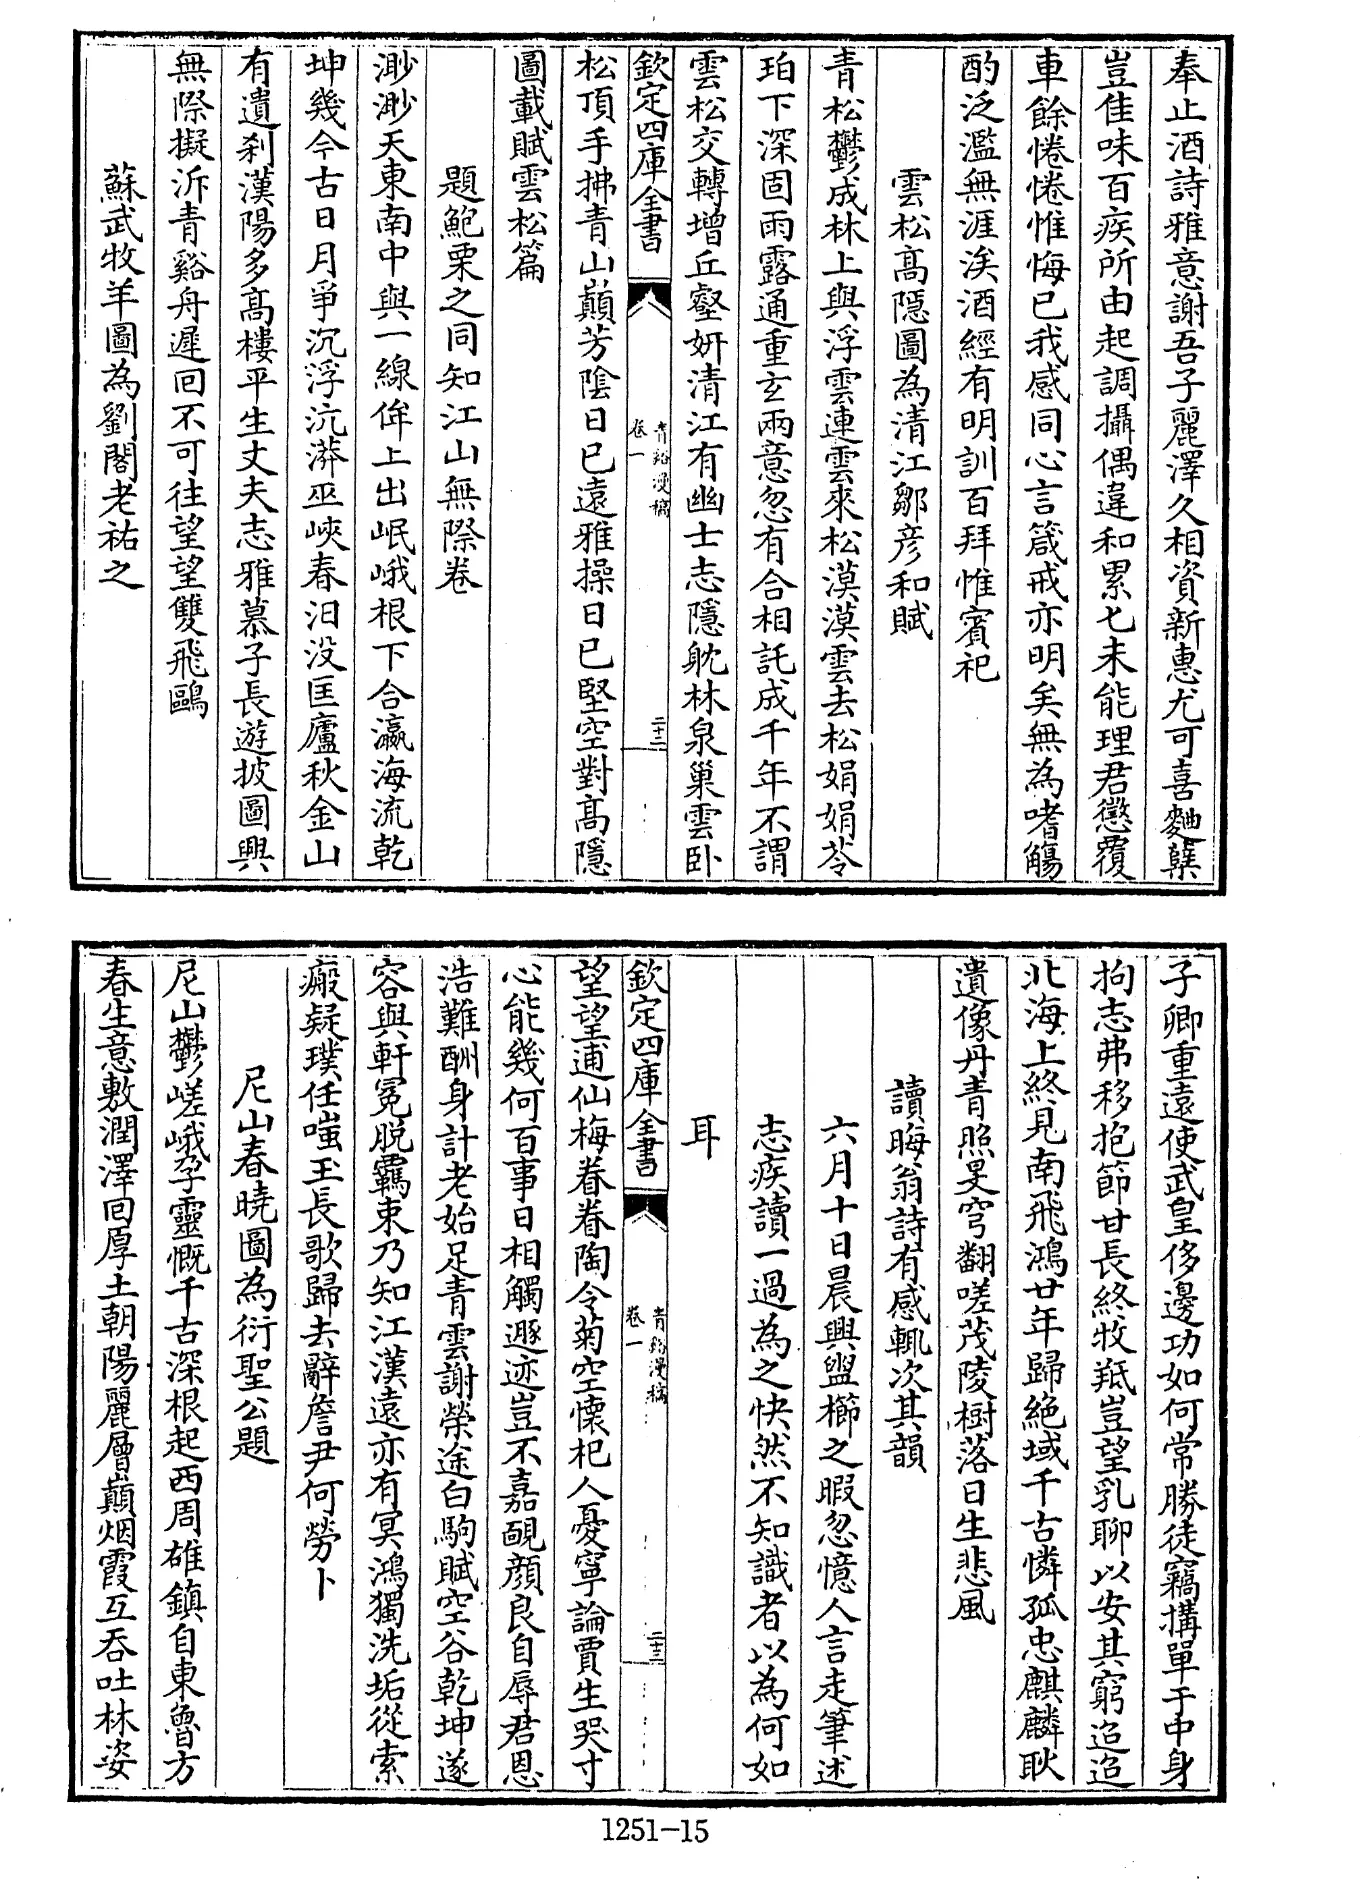 奉止酒詩雅意謝吾子麗澤久相資新惠尤可喜麯糱
豈佳味百疾所由起調攝偶違和累七未能理君懲覆
車餘惓惓惟悔已我感同心言箴戒亦明矣無為嗜觴
酌泛濫無涯涘酒經有明訓百拜惟賓祀
雲松高隱圖為清江鄒彦和賦
青松鬱成林上與浮雲連雲來松漠漠雲去松娟娟苓
珀下深固雨露通重玄兩意忽有合相託成千年不謂
雲松交轉增丘壑妍清江有幽士志隱躭林泉巢雲卧
欽定四庫全書
青谿漫稿
卷一
二十二
松頂手拂青山巔芳陰日已遠雅操日已堅空對高隱
圖載賦雲松篇
題鮑栗之同知江山無際卷
渺渺天東南中與一線侔上出岷峨根下合瀛海流乾
坤幾今古日月爭沉浮沆漭巫峽春汨没匡廬秋金山
有遺刹漢陽多高樓平生丈夫志雅慕子長遊披圖興
無際擬泝青谿舟遲回不可往望望雙飛鷗
蘇武牧羊圖為劉閣老祐之
子卿重遠使武皇侈邊功如何常勝徒竊搆單于中身
拘志弗移抱節甘長終牧羝豈望乳聊以安其窮迢迢
北海上終見南飛鴻廿年歸絶域千古憐孤忠麒麟耿
遺像丹青照旻穹翻嗟茂陵樹落日生悲風
讀晦翁詩有感輒次其韻
六月十日晨興盥櫛之暇忽憶人言走筆述
志疾讀一過為之快然不知識者以為何如
耳
欽定四庫全書
青谿漫稿
卷一
二十三
望望逋仙梅眷眷陶令菊空懷杞人憂寧論賈生哭寸
心能幾何百事日相觸遯迹豈不嘉靦顔良自辱君恩
浩難酬身計老始足青雲謝榮途白駒賦空谷乾坤遂
容與軒冕脱羈束乃知江漢遠亦有冥鴻獨洗垢從索
瘢疑璞任嗤玉長歌歸去辭詹尹何勞卜
尼山春曉圖為衍聖公題
尼山鬱嵯峨孕靈慨千古深根起西周雄鎮自東魯方
春生意敷潤澤回厚土朝陽麗層巔烟霞互吞吐林姿
1251-15